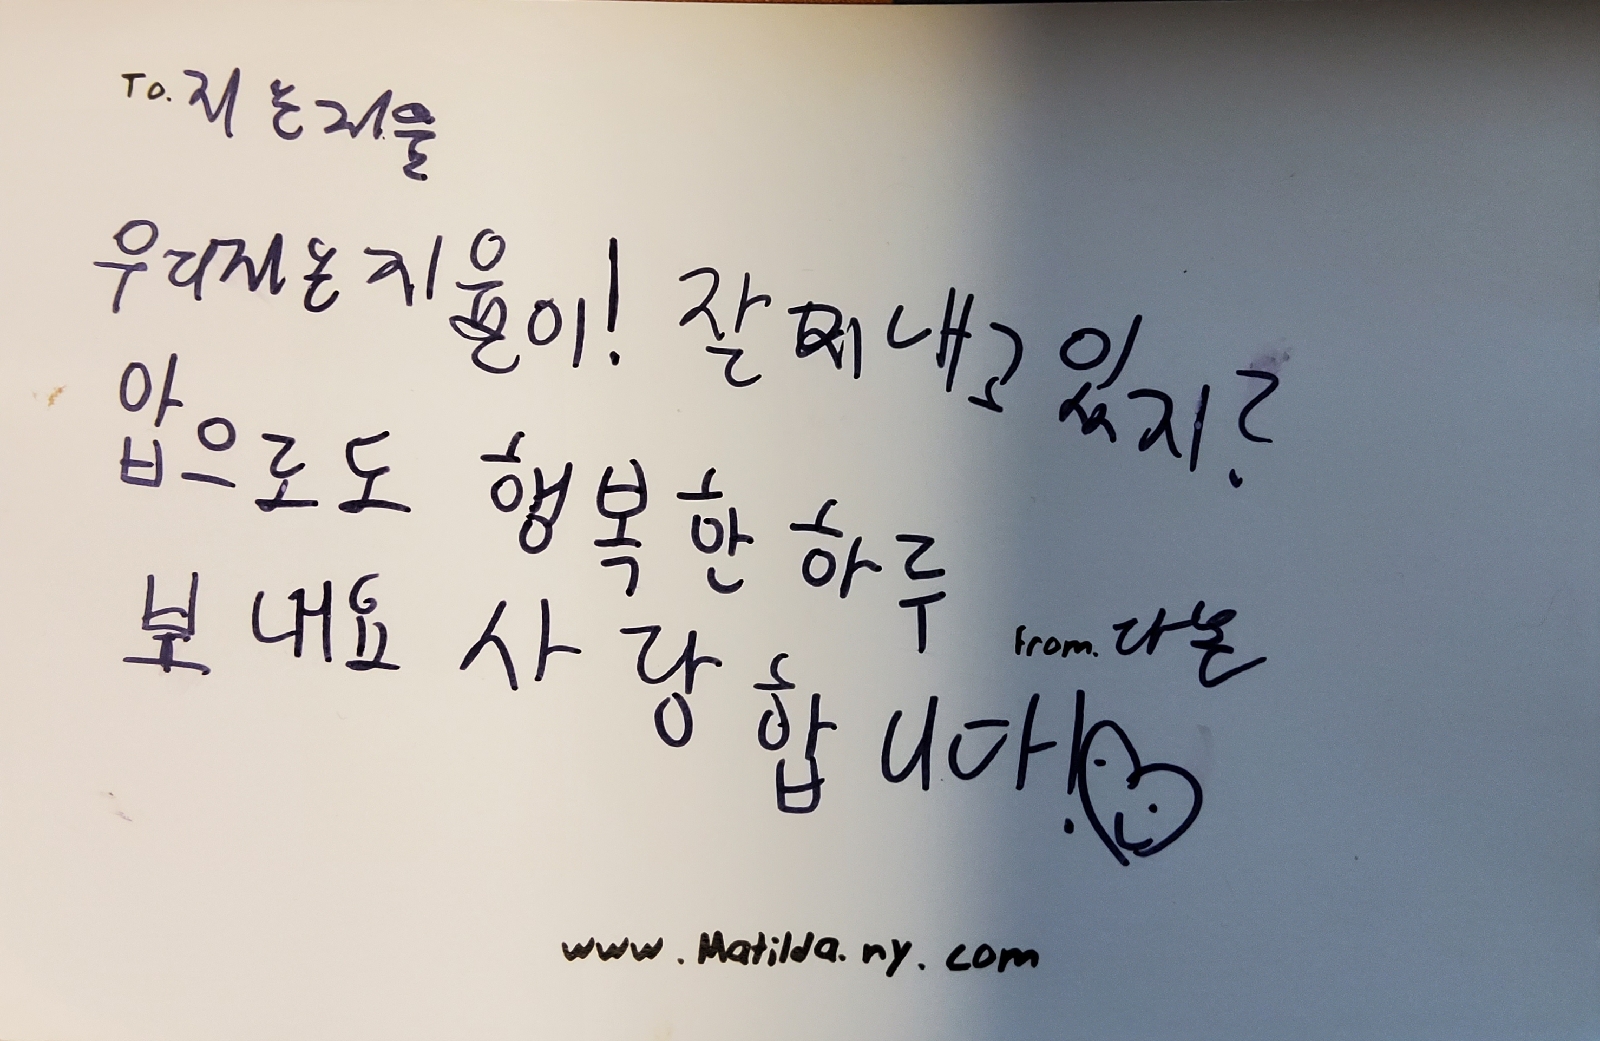 To. 지온지율
우리지온지율이! 잘 지내고 있지?
압으로도 행복한 하루
보내요 사랑합니다!
from. 다온
www.Matilda.ny.com